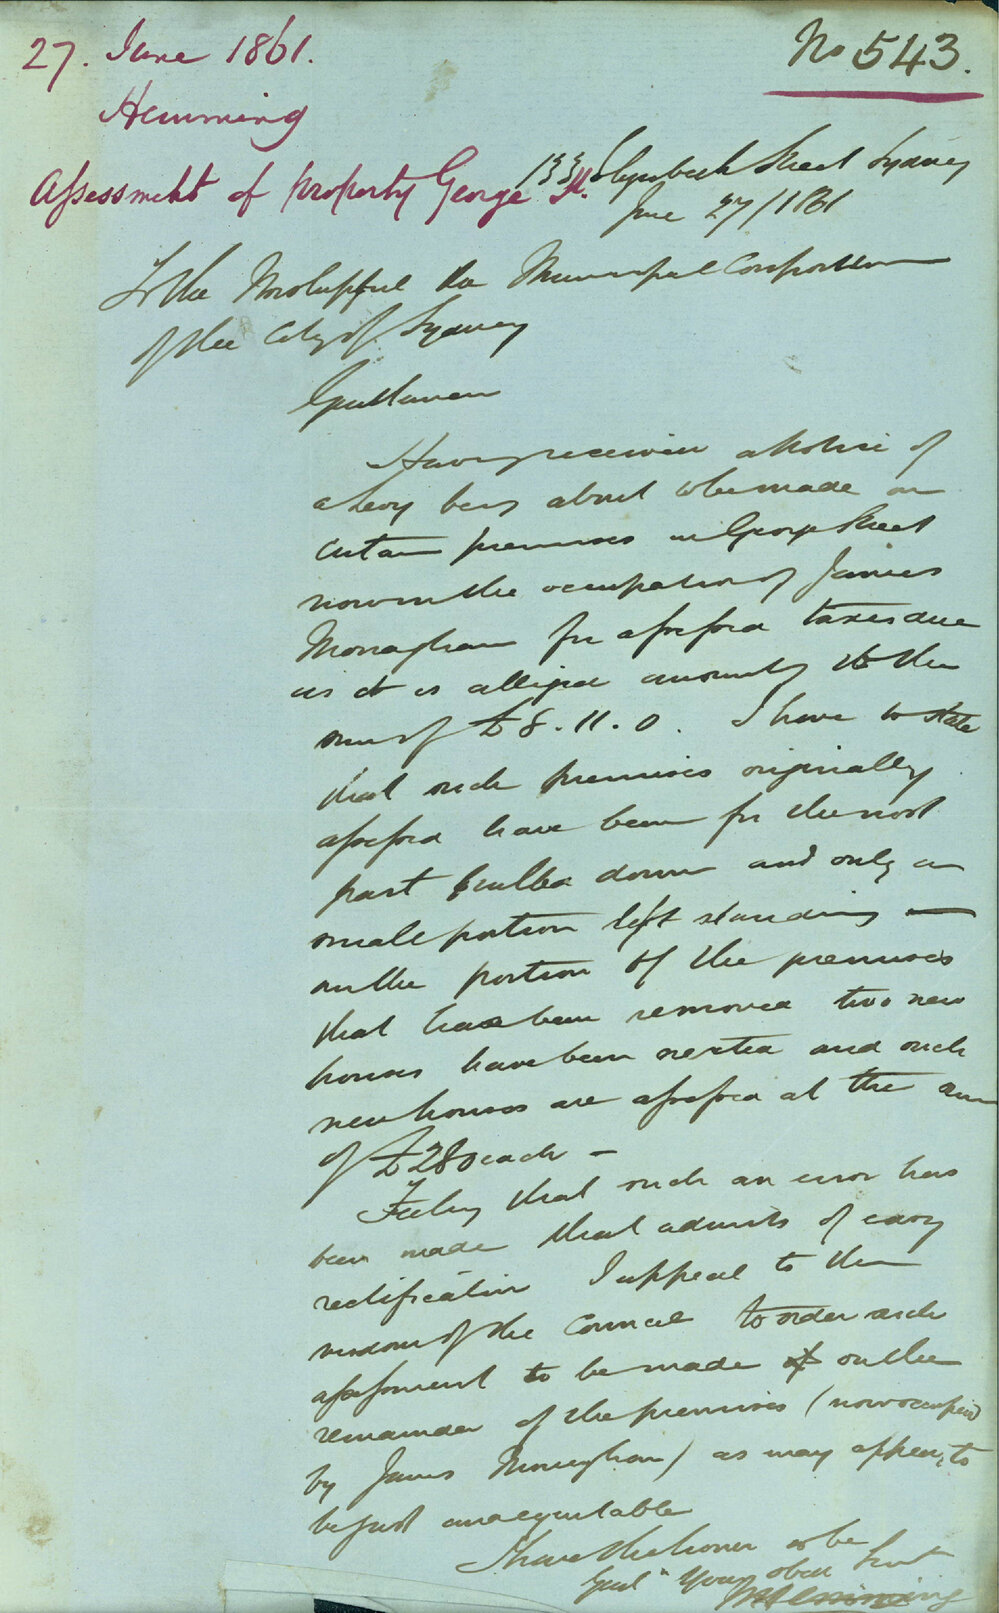 27. June 1861.
No 543.
Hemming
Assessment of property George St.
133 Elizabeth Street Sydney
June 27/1861
To the Worshipful the Municipal Corporation
of the City of Sydney
Gentlemen
Having received a Notice of
a levy being about to be made on
certain premises in George Street
now in the occupation of James
Monaghan for assessed taxes due
as it is alleged amounting to the
sum of £8.11.0. I have to state
that such premises originally
assessed have been for the most
part pulled down and only a
small portion left standing —
on the portion of the premises
that has been removed two new
houses have been erected and such
new houses are assessed at the sum
of £280 each —
Feeling that such an error has
been made that admits of easy
rectification I appeal to the
wisdom of the Council to order such
assessment to be made on the
remainder of the premises (now occupied
by James Monaghan) as may appear to
be just and equitable
I have the honor to be
Gent Your obed Servt
Hemming